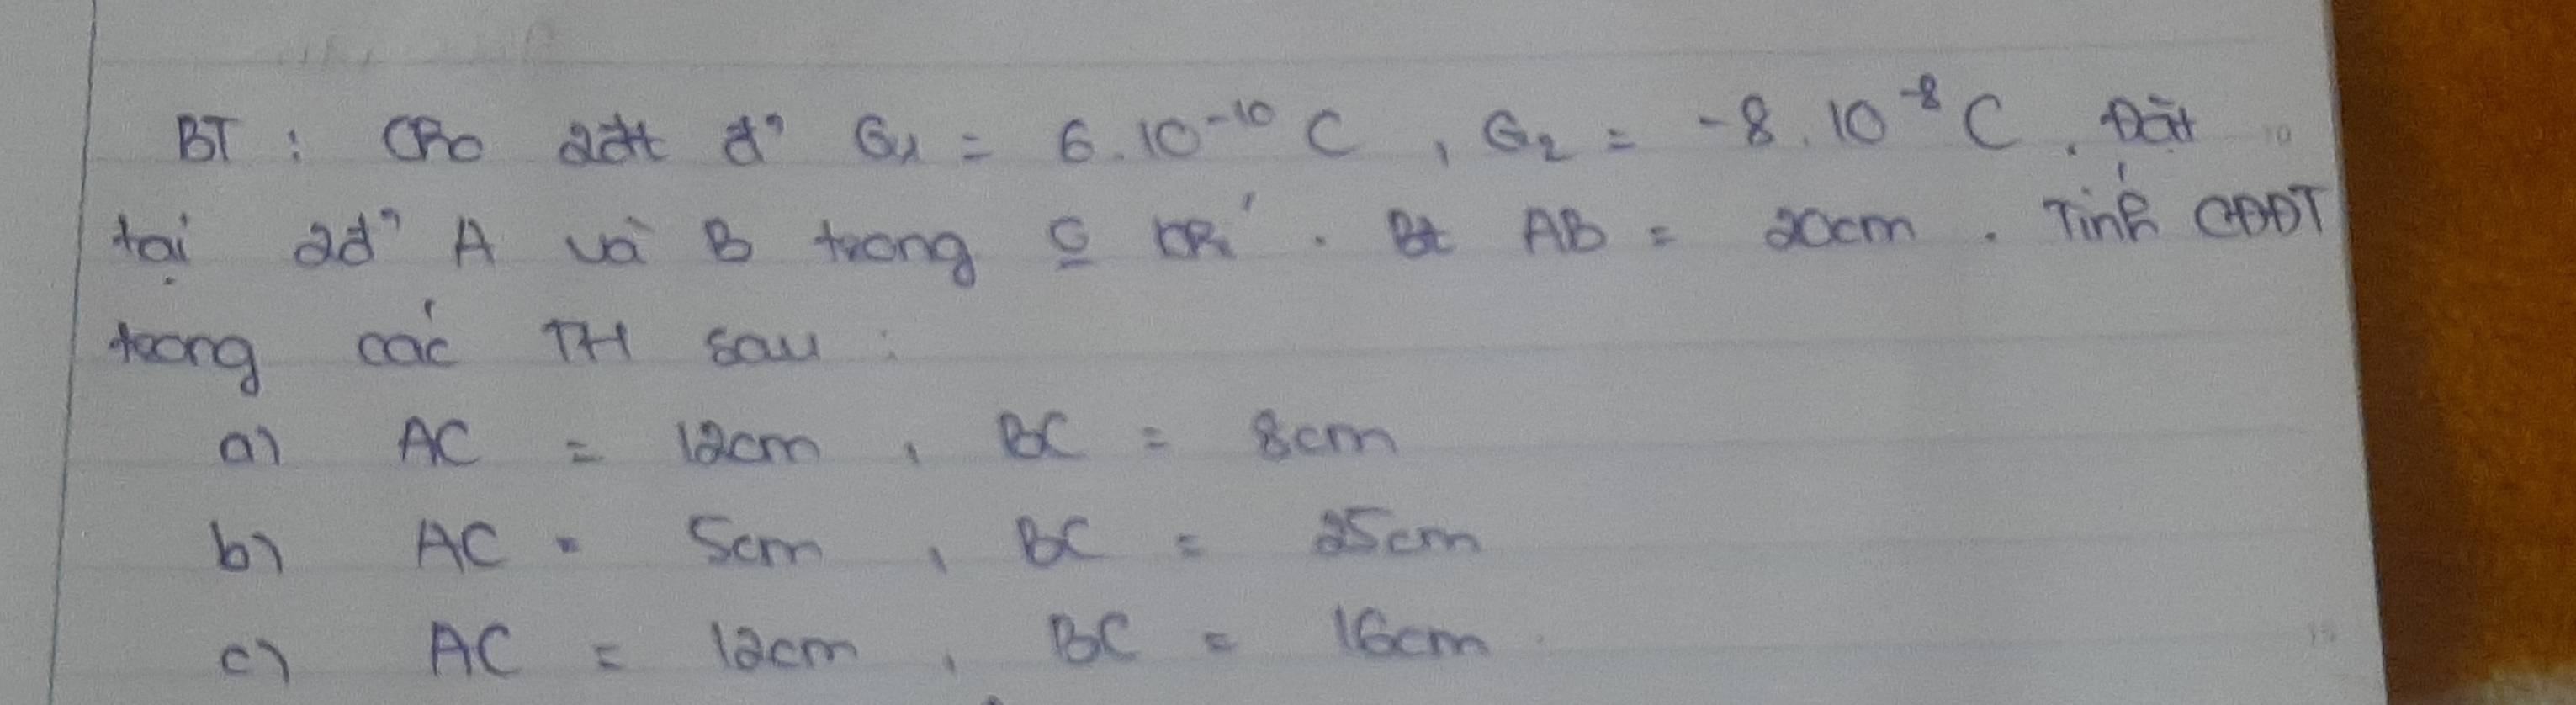 BT : Cho 2đt đ' Q₁ = 6.10⁻¹⁰ C , Q₂ = -8.10⁻⁸ C . Đặt
tại 2đ' A và B trong kk' . Bt AB = 20cm . Tính CĐĐT
trong các TH sau :
a) AC = 12cm , BC = 8cm
b) AC = 5cm , BC = 25cm
c) AC = 12cm , BC = 16cm